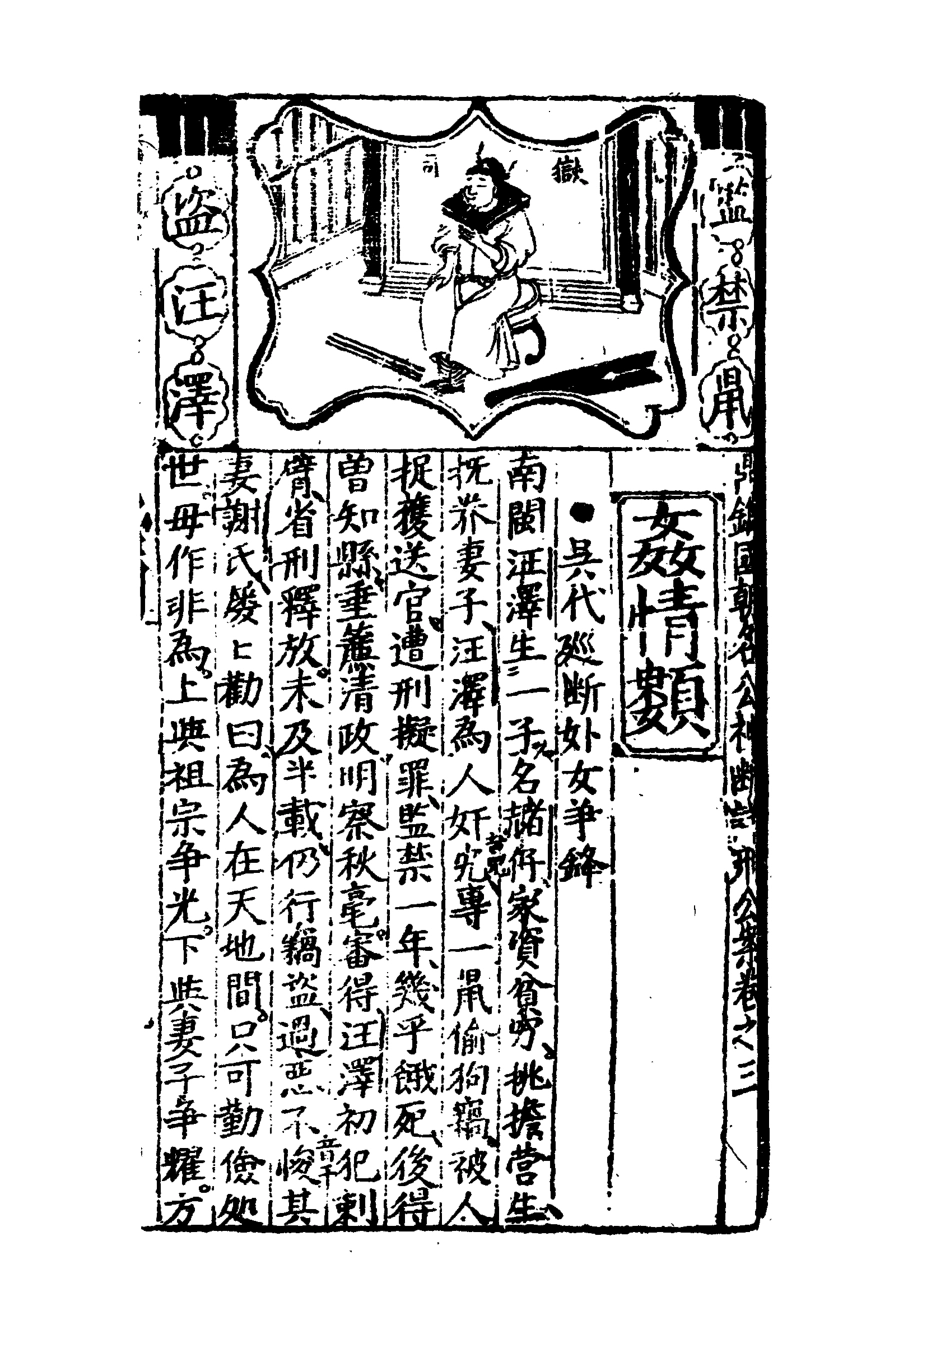 監禁鼡
獄司
盜汪澤
鼎鐫國朝名公神斷詳刑公案卷之三
姦情類
●吳代廵断妒女争鋒
南閩汪澤生一子名赭仔家資貧穷挑擔营生
抚养妻子、汪澤為人奸宄音軌專一鼡偷狗竊。被人
捉獲送官。遭刑擬罪、監禁一年、幾乎餓死、後得
曽知縣垂簾清政明察秋毫。審得汪澤初犯剌
臂、省刑釋放。未及半載、仍行竊盜、過惡不悛音千其
妻謝氏、發匕勸曰。為人在天地間。只可勤儉処
世。毋作非為。上與祖宗争光。下與妻子争耀。方